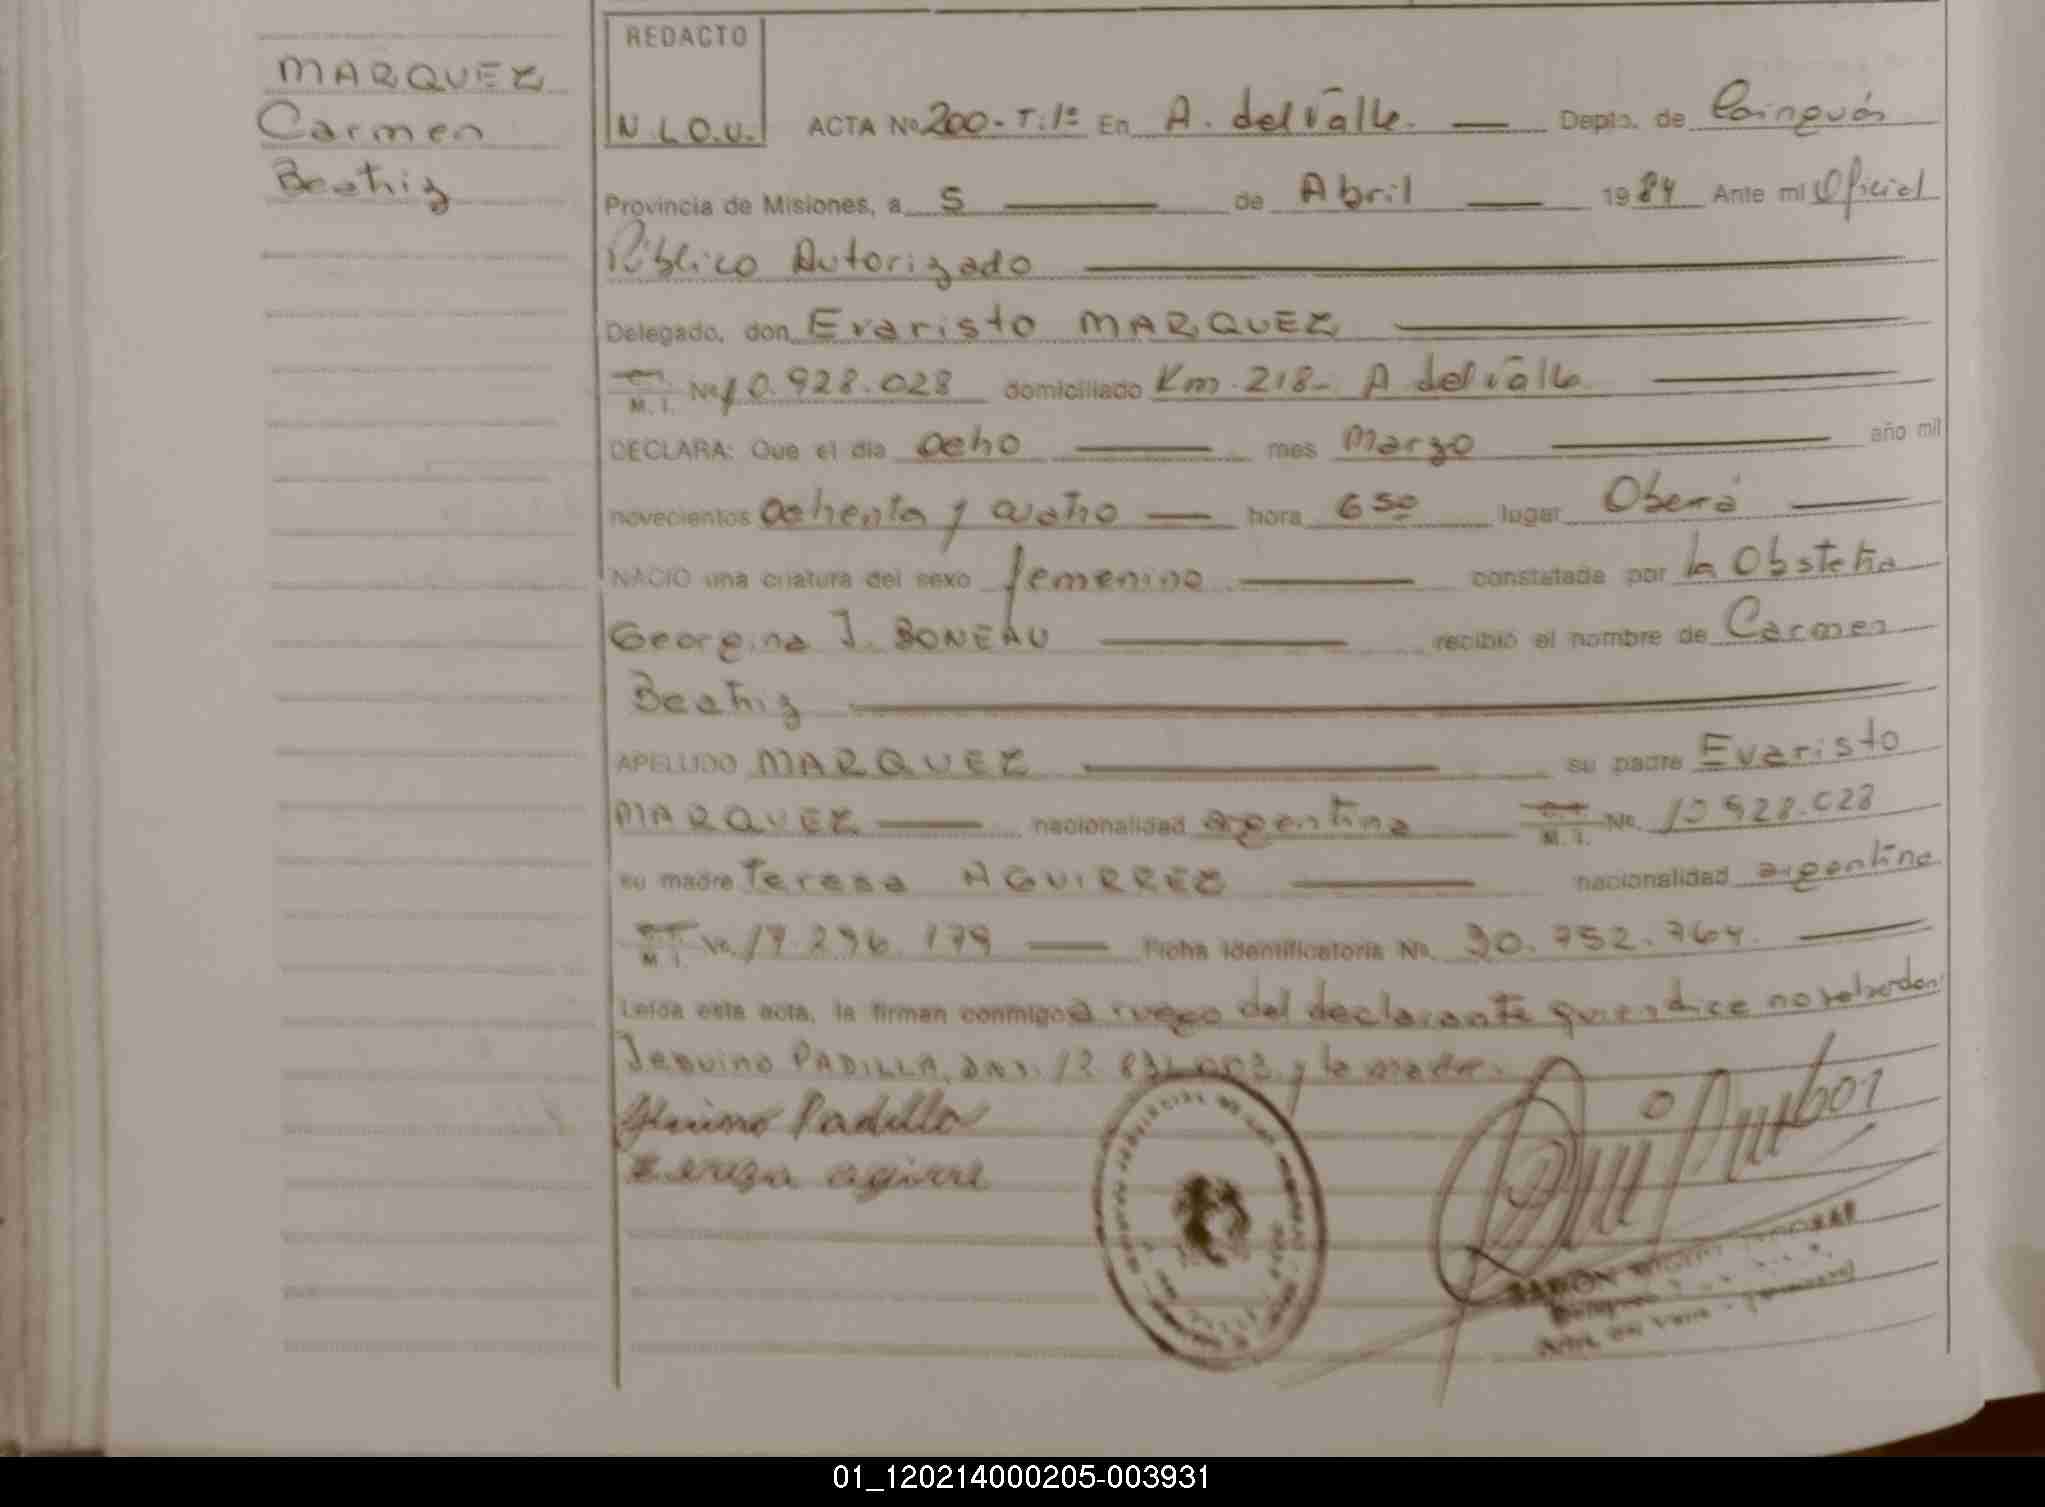 MARQUEZ
Carmen
Beatriz
REDACTO
N.L.O.V.
ACTA Nº 200 - T: 1º En A. del Valle. Depto. de Cainguás
Provincia de Misiones, a 5 de Abril 1984 Ante mi Oficial
Público Autorizado
Delegado, don Evaristo MARQUEZ
M. I. Nº 10.928.028 domiciliado Km. 218 - A del valle.
DECLARA: Que el día ocho mes Marzo año mil
novecientos ochenta y cuatro hora 6 50 lugar Oberá
NACIO una criatura del sexo femenino constatada por la Obstetra
Georgina J. BONEAU recibió el nombre de Carmen
Beatriz
APELLIDO MARQUEZ su padre Evaristo
MARQUEZ nacionalidad argentina M. I. Nº 10.928.028
su madre Teresa AGUIRREZ nacionalidad argentina
M. I. Nº 17.296.179 Ficha Identificatoria Nº 30.752.764.
Leída esta acta, la firman conmigo a ruego del declarante quien dice no
PADILLA, y la madre.
Padilla